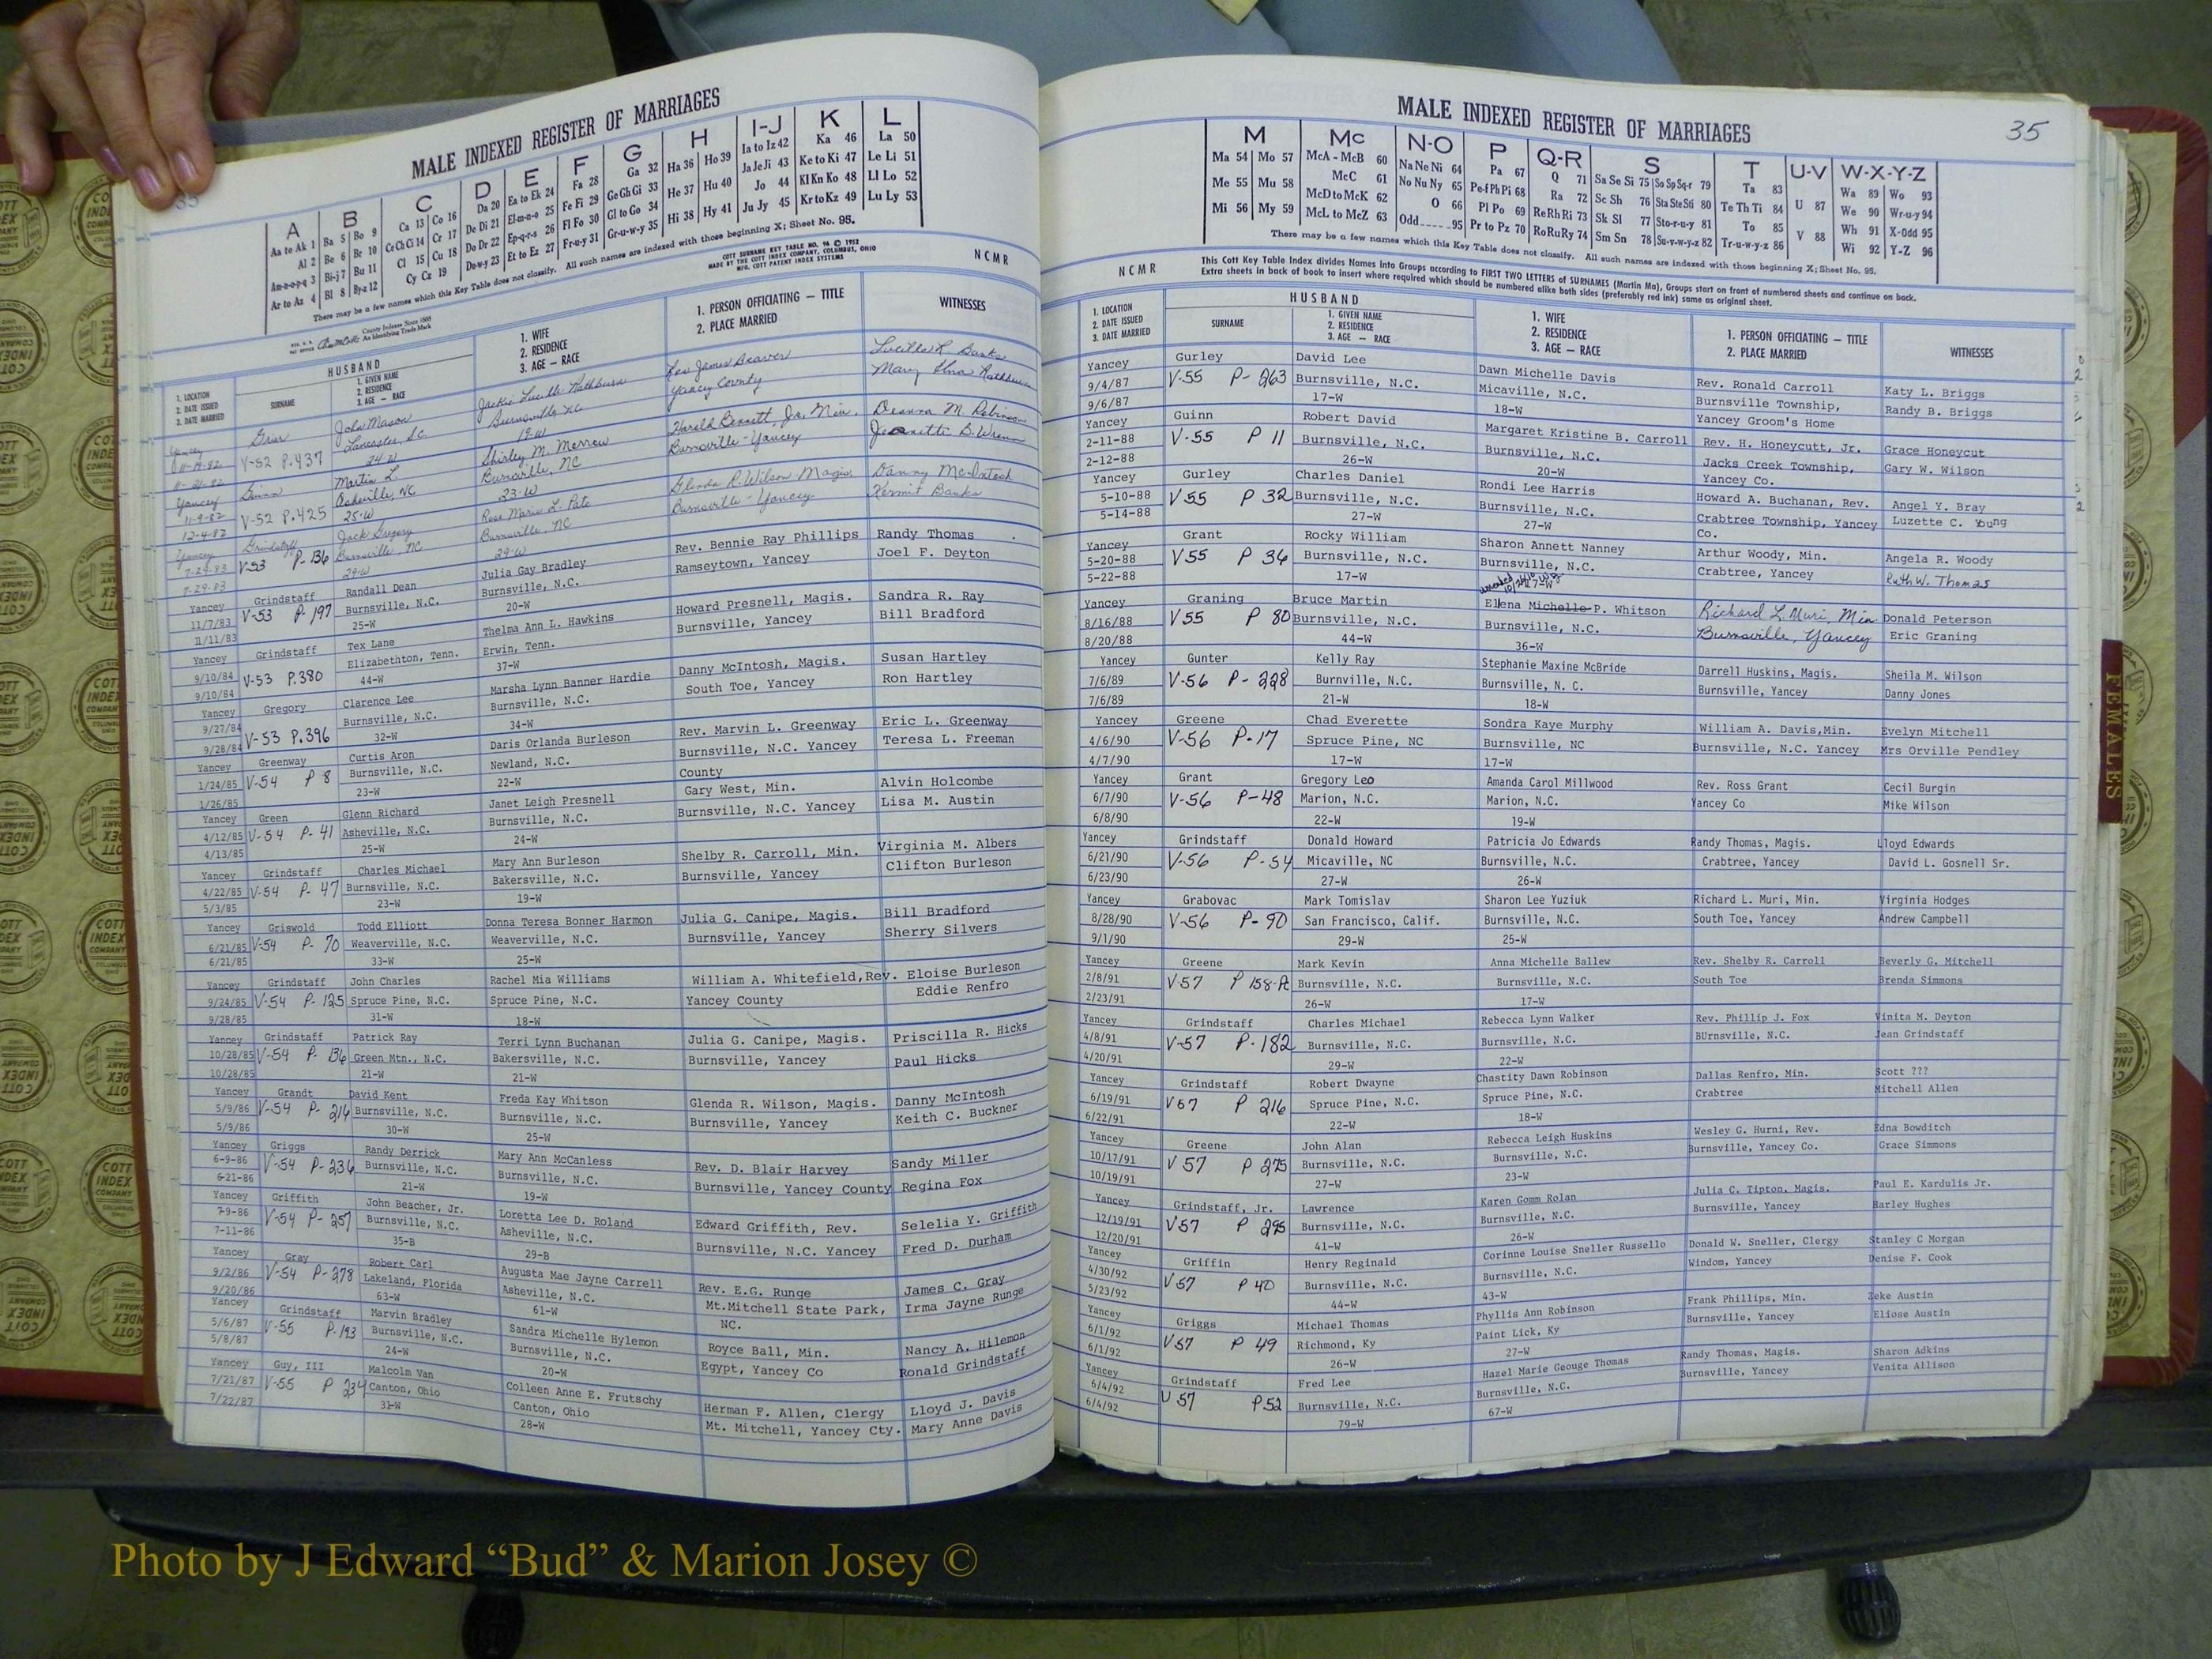 MALE INDEXED REGISTER OF MARRIAGES
A B C D E F G H I-J K L
Aa to Ak 1 Ba 5 Bo 9 Ca 13 Co 16 Da 20 Ea to Ek 24 Fa 28 Ga 32 Ha 36 Ho 39 Ia to Iz 42 Ka 46 La 50
Al 2 Be 6 Br 10 Ce Ch Ci 14 Cr 17 De Di 21 El-m-n-o 25 Fe Fi 29 Ge Gh Gi 33 He 37 Hu 40 Ja Je Ji 43 Ke to Ki 47 Le Li 51
Am-n-o-p-q 3 Bi-j 7 Bu 11 Cl 15 Cu 18 Do Dr 22 Ep-q-r-s 26 Fl Fo 30 Gl to Go 34 Hi 38 Hy 41 Jo 44 Kl Kn Ko 48 Ll Lo 52
Ar to Az 4 Bl 8 By-z 12 Cy Cz 19 Du-w-y 23 Et to Ez 27 Fr-u-y 31 Gr-u-w-y 35 Ju Jy 45 Kr to Kz 49 Lu Ly 53
There may be a few names which this Key Table does not classify. All such names are indexed with those beginning X; Sheet No. 95.
COTT SURNAME KEY TABLE NO. 96 © 1952
MADE BY THE COTT INDEX COMPANY, COLUMBUS, OHIO
MFG. COTT PATENT INDEX SYSTEMS
NCMR
County Indexes Since 1888
An Identifying Trade Mark
HUSBAND
1. LOCATION
2. DATE ISSUED
3. DATE MARRIED
SURNAME
1. GIVEN NAME
2. RESIDENCE
3. AGE — RACE
1. WIFE
2. RESIDENCE
3. AGE — RACE
1. PERSON OFFICIATING — TITLE
2. PLACE MARRIED
WITNESSES
Yancey John Mason Jackie Lucille Rathburn Rev James Beaver Lucille R. Banks
V-52 P.437 Lancaster, S.C. Burnsville NC Yancey County Mary
24-W 19-W
Yancey Martin L. Shirley M. Morrow Harold Bennett, Jr. Min. Deanna M. Robinson
11-9-82 V-52 P.425 Asheville, NC Burnsville, NC Burnsville-Yancey
12-4-82 25-W 23-W
Yancey Grindstaff Jack Gregory Rose Marie L. Pate Glenda R. Wilson Magis. Danny McIntosh
V-53 P-136 Burnsville, NC Burnsville, NC Burnsville-Yancey Kermit Banks
7-29-83 29-W 29-W
Yancey Grindstaff Randall Dean Julia Gay Bradley Rev. Bennie Ray Phillips Randy Thomas
11/7/83 V-53 P-197 Burnsville, N.C. Burnsville, N.C. Ramseytown, Yancey Joel F. Deyton
11/11/83 25-W 20-W
Yancey Grindstaff Tex Lane Thelma Ann L. Hawkins Howard Presnell, Magis. Sandra R. Ray
9/10/84 V-53 P.380 Elizabethton, Tenn. Erwin, Tenn. Burnsville, Yancey Bill Bradford
9/10/84 44-W 37-W
Yancey Gregory Clarence Lee Marsha Lynn Banner Hardie Danny McIntosh, Magis. Susan Hartley
9/27/84 V-53 P.396 Burnsville, N.C. Burnsville, N.C. South Toe, Yancey Ron Hartley
9/28/84 32-W 34-W
Yancey Greenway Curtis Aron Daris Orlanda Burleson Rev. Marvin L. Greenway Eric L. Greenway
1/24/85 V-54 P 8 Burnsville, N.C. Newland, N.C. Burnsville, N.C. Yancey Teresa L. Freeman
1/26/85 23-W 22-W County
Yancey Green Glenn Richard Janet Leigh Presnell Gary West, Min. Alvin Holcombe
4/12/85 V-54 P-41 Asheville, N.C. Burnsville, N.C. Burnsville, N.C. Yancey Lisa M. Austin
4/13/85 25-W 24-W
Yancey Grindstaff Charles Michael Mary Ann Burleson Shelby R. Carroll, Min. Virginia M. Albers
4/22/85 V-54 P-47 Burnsville, N.C. Bakersville, N.C. Burnsville, Yancey Clifton Burleson
5/3/85 23-W 19-W
Yancey Griswold Todd Elliott Donna Teresa Bonner Harmon Julia G. Canipe, Magis. Bill Bradford
6/21/85 V-54 P-70 Weaverville, N.C. Weaverville, N.C. Burnsville, Yancey Sherry Silvers
6/21/85 33-W 25-W
Yancey Grindstaff John Charles Rachel Mia Williams William A. Whitefield,Rev. Eloise Burleson
9/24/85 V-54 P-125 Spruce Pine, N.C. Spruce Pine, N.C. Yancey County Eddie Renfro
9/28/85 31-W 18-W
Yancey Grindstaff Patrick Ray Terri Lynn Buchanan Julia G. Canipe, Magis. Priscilla R. Hicks
10/28/85 V-54 P-136 Green Mtn., N.C. Bakersville, N.C. Burnsville, Yancey Paul Hicks
10/28/85 21-W 21-W
Yancey Grandt David Kent Freda Kay Whitson Glenda R. Wilson, Magis. Danny McIntosh
5/9/86 V-54 P-214 Burnsville, N.C. Burnsville, N.C. Burnsville, Yancey Keith C. Buckner
5/9/86 30-W 25-W
Yancey Griggs Randy Derrick Mary Ann McCanless Rev. D. Blair Harvey Sandy Miller
6-9-86 V-54 P-236 Burnsville, N.C. Burnsville, N.C. Burnsville, Yancey County Regina Fox
6-21-86 21-W 19-W
Yancey Griffith John Beacher, Jr. Loretta Lee D. Roland Edward Griffith, Rev. Selelia Y. Griffith
7-9-86 V-54 P-257 Burnsville, N.C. Asheville, N.C. Burnsville, N.C. Yancey Fred D. Durham
7-11-86 35-B 29-B
Yancey Gray Robert Carl Augusta Mae Jayne Carrell Rev. E.G. Runge James C. Gray
9/2/86 V-54 P-278 Lakeland, Florida Asheville, N.C. Mt.Mitchell State Park, Irma Jayne Runge
9/20/86 63-W 61-W NC.
Yancey Grindstaff Marvin Bradley Sandra Michelle Hylemon Royce Ball, Min. Nancy A. Hilemon
5/6/87 V-55 P-193 Burnsville, N.C. Burnsville, N.C. Egypt, Yancey Co Ronald Grindstaff
5/8/87 24-W 20-W
Yancey Guy, III Malcolm Van Colleen Anne E. Frutschy Herman F. Allen, Clergy Lloyd J. Davis
7/21/87 V-55 P 234 Canton, Ohio Canton, Ohio Mt. Mitchell, Yancey Cty. Mary Anne Davis
7/22/87 31-W 28-W
MALE INDEXED REGISTER OF MARRIAGES 35
M Mc N-O P Q-R S T U-V W-X-Y-Z
Ma 54 Mo 57 McA - McB 60 Na Ne Ni 64 Pa 67 Q 71 Sa Se Si 75 So Sp Sq-r 79 Ta 83 U 87 Wa 89 Wo 93
Me 55 Mu 58 McC 61 No Nu Ny 65 Pe-f Ph Pi 68 Ra 72 Sc Sh 76 Sta Ste Sti 80 Te Th Ti 84 V 88 We 90 Wr-u-y 94
Mi 56 My 59 McD to McK 62 O 66 Pl Po 69 Re Rh Ri 73 Sk Sl 77 Sto-r-u-y 81 To 85 Wh 91 X-Odd 95
McL to McZ 63 Odd 95 Pr to Pz 70 Ro Ru Ry 74 Sm Sn 78 Su-v-w-y-z 82 Tr-u-w-y-z 86 Wi 92 Y-Z 96
There may be a few names which this Key Table does not classify. All such names are indexed with those beginning X; Sheet No. 95.
NCMR
This Cott Key Table Index divides Names into Groups according to FIRST TWO LETTERS of SURNAMES (Martin Ma), Groups start on front of numbered sheets and continue on back.
Extra sheets in back of book to insert where required which should be numbered alike both sides (preferably red ink) same as original sheet.
HUSBAND
1. LOCATION
2. DATE ISSUED
3. DATE MARRIED
SURNAME
1. GIVEN NAME
2. RESIDENCE
3. AGE — RACE
1. WIFE
2. RESIDENCE
3. AGE — RACE
1. PERSON OFFICIATING — TITLE
2. PLACE MARRIED
WITNESSES
Yancey Gurley David Lee Dawn Michelle Davis Rev. Ronald Carroll Katy L. Briggs
9/4/87 V-55 P-263 Burnsville, N.C. Micaville, N.C. Burnsville Township, Randy B. Briggs
9/6/87 17-W 18-W Yancey Groom's Home
Yancey Guinn Robert David Margaret Kristine B. Carroll Rev. H. Honeycutt, Jr. Grace Honeycut
2-11-88 V-55 P 11 Burnsville, N.C. Burnsville, N.C. Jacks Creek Township, Gary W. Wilson
2-12-88 26-W 20-W Yancey Co.
Yancey Gurley Charles Daniel Rondi Lee Harris Howard A. Buchanan, Rev. Angel Y. Bray
5-10-88 V55 P 32 Burnsville, N.C. Burnsville, N.C. Crabtree Township, Yancey Luzette C. Young
5-14-88 27-W 27-W Co.
Yancey Grant Rocky William Sharon Annett Nanney Arthur Woody, Min. Angela R. Woody
5-20-88 V55 P 36 Burnsville, N.C. Burnsville, N.C. Crabtree, Yancey Ruth W. Thomas
5-22-88 17-W 17-W
Yancey Graning Bruce Martin Elena Michelle P. Whitson Richard L. Muri, Min Donald Peterson
8/16/88 V55 P 80 Burnsville, N.C. Burnsville, N.C. Burnsville, Yancey Eric Graning
8/20/88 44-W 36-W
Yancey Gunter Kelly Ray Stephanie Maxine McBride Darrell Huskins, Magis. Sheila M. Wilson
7/6/89 V-56 P-228 Burnville, N.C. Burnsville, N. C. Burnsville, Yancey Danny Jones
7/6/89 21-W 18-W
Yancey Greene Chad Everette Sondra Kaye Murphy William A. Davis,Min. Evelyn Mitchell
4/6/90 V-56 P-17 Spruce Pine, NC Burnsville, NC Burnsville, N.C. Yancey Mrs Orville Pendley
4/7/90 17-W 17-W
Yancey Grant Gregory Leo Amanda Carol Millwood Rev. Ross Grant Cecil Burgin
6/7/90 V-56 P-48 Marion, N.C. Marion, N.C. Yancey Co Mike Wilson
6/8/90 22-W 19-W
Yancey Grindstaff Donald Howard Patricia Jo Edwards Randy Thomas, Magis. Lloyd Edwards
6/21/90 V-56 P-54 Micaville, NC Burnsville, N.C. Crabtree, Yancey David L. Gosnell Sr.
6/23/90 27-W 26-W
Yancey Grabovac Mark Tomislav Sharon Lee Yuziuk Richard L. Muri, Min. Virginia Hodges
8/28/90 V-56 P-90 San Francisco, Calif. Burnsville, N.C. South Toe, Yancey Andrew Campbell
9/1/90 29-W 25-W
Yancey Greene Mark Kevin Anna Michelle Ballew Rev. Shelby R. Carroll Beverly G. Mitchell
2/8/91 V-57 P 158-A Burnsville, N.C. Burnsville, N.C. South Toe Brenda Simmons
2/23/91 26-W 17-W
Yancey Grindstaff Charles Michael Rebecca Lynn Walker Rev. Phillip J. Fox Vinita M. Deyton
4/8/91 V-57 P-182 Burnsville, N.C. Burnsville, N.C. BUrnsville, N.C. Jean Grindstaff
4/20/91 29-W 22-W
Yancey Grindstaff Robert Dwayne Chastity Dawn Robinson Dallas Renfro, Min. Scott ???
6/19/91 V57 P 216 Spruce Pine, N.C. Spruce Pine, N.C. Crabtree Mitchell Allen
6/22/91 22-W 18-W
Yancey Greene John Alan Rebecca Leigh Huskins Wesley G. Hurni, Rev. Edna Bowditch
10/17/91 V 57 P 275 Burnsville, N.C. Burnsville, N.C. Burnsville, Yancey Co. Grace Simmons
10/19/91 27-W 23-W
Yancey Grindstaff, Jr. Lawrence Karen Gomm Rolan Julia C. Tipton, Magis. Paul E. Kardulis Jr.
12/19/91 V57 P 295 Burnsville, N.C. Burnsville, N.C. Burnsville, Yancey Harley Hughes
12/20/91 41-W 26-W
Yancey Griffin Henry Reginald Corinne Louise Sneller Russello Donald W. Sneller, Clergy Stanley C Morgan
4/30/92 V57 P 40 Burnsville, N.C. Burnsville, N.C. Windom, Yancey Denise F. Cook
5/23/92 44-W 43-W
Yancey Griggs Michael Thomas Phyllis Ann Robinson Frank Phillips, Min. Zeke Austin
6/1/92 V57 P 49 Richmond, Ky Paint Lick, Ky Burnsville, Yancey Eliose Austin
6/1/92 26-W 27-W
Yancey Grindstaff Fred Lee Hazel Marie Geouge Thomas Randy Thomas, Magis. Sharon Adkins
6/4/92 V 57 P.52 Burnsville, N.C. Burnsville, N.C. Burnsville, Yancey Venita Allison
6/4/92 79-W 67-W
FEMALES
COTT INDEX COMPANY
Photo by J Edward “Bud” & Marion Josey ©